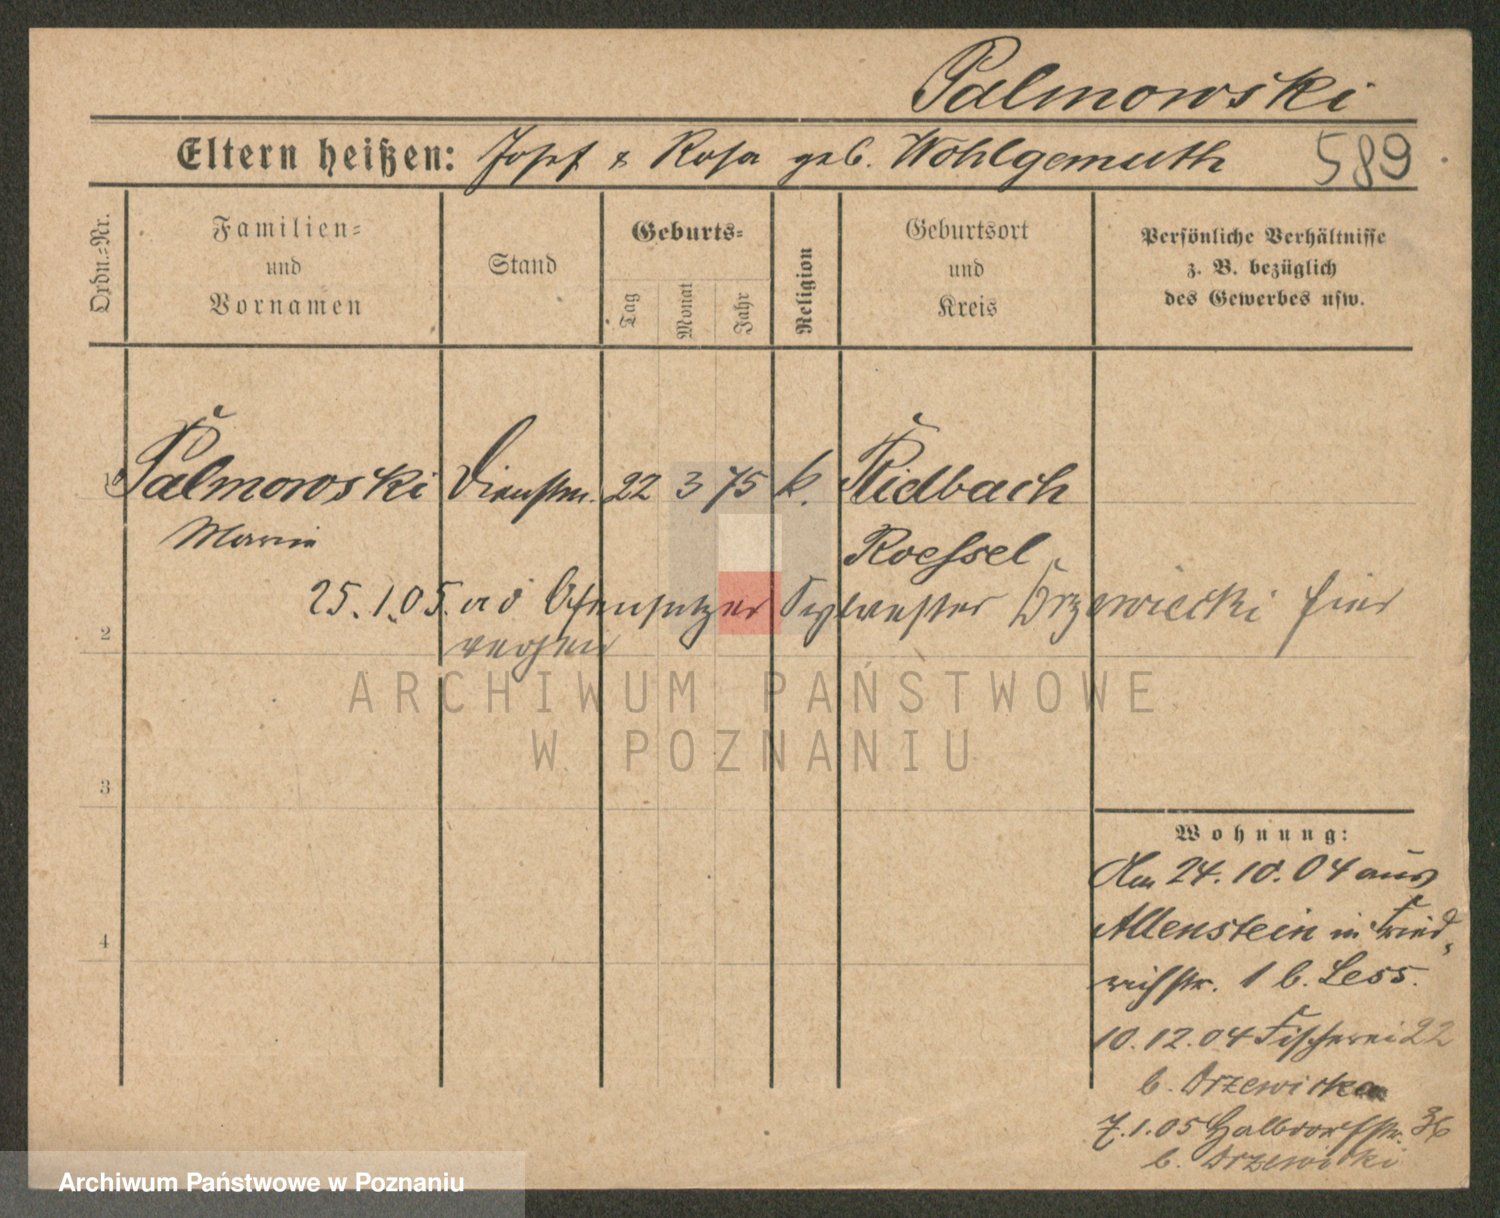 Palmowski
Eltern heißen: Josef & Rosa geb. Wohlgemuth 589
Ordn.=Nr.
Familien=
und
Vornamen
Stand
Geburts=
Tag
Monat
Jahr
Religion
Geburtsort
und
Kreis
Persönliche Verhältnisse
z. B. bezüglich
des Gewerbes usw.
1 Palmowski Dienstm. 22 3 75 k. Ridbach
Marie Roessel
25.1.05. Ofensetzer Sylvester Drzewiecki hier
2
3
4
ARCHIWUM PAŃSTWOWE
W POZNANIU
Wohnung:
Am 24.10.04 aus
Allenstein in Fried=
richstr. 1 b. Less.
10.12.04 Fischerei 22
b. Drzewicka
7.1.05 Halbdorfstr. 36
b. Drzewicki
Archiwum Państwowe w Poznaniu